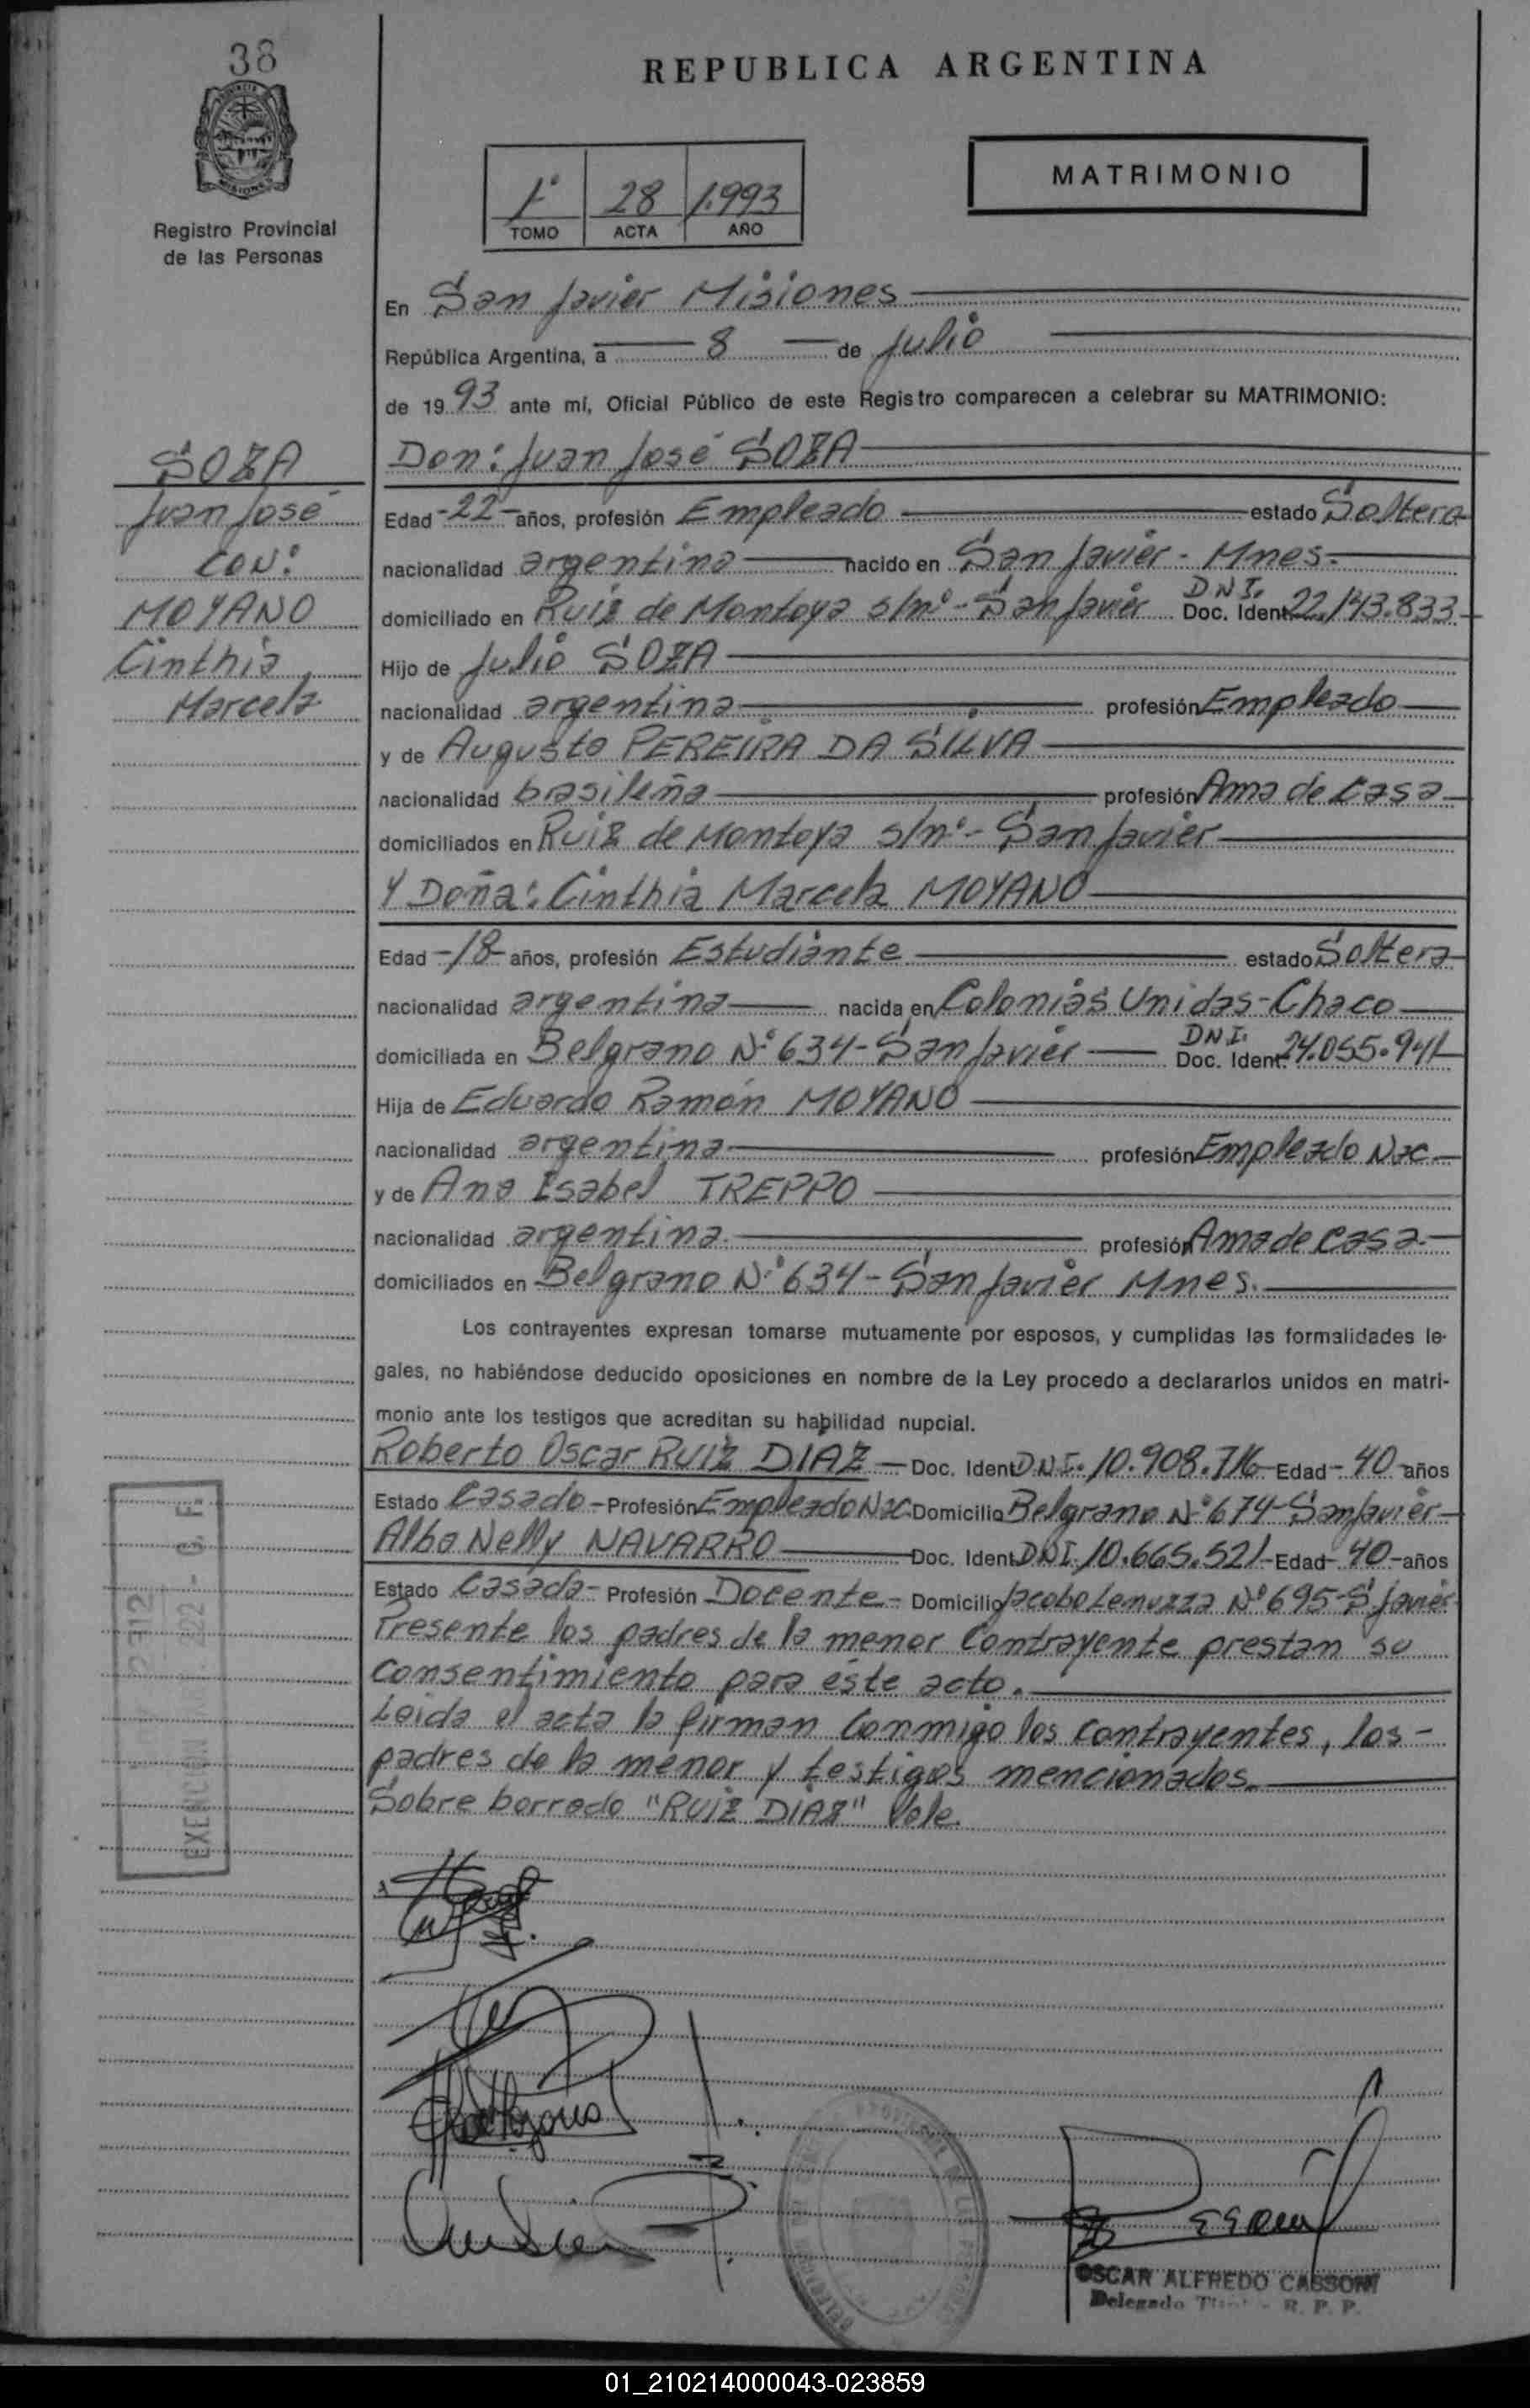 38
REPUBLICA ARGENTINA
MATRIMONIO
1º 28 1.993
TOMO ACTA AÑO
Registro Provincial
de las Personas
En San Javier Misiones
República Argentina, a 8 de Julio
de 1993 ante mí, Oficial Público de este Registro comparecen a celebrar su MATRIMONIO:
SOZA
Juan José
con:
MOYANO
Cinthia
Marcela
Don: Juan José SOZA
Edad -22- años, profesión Empleado estado Soltero
nacionalidad argentina nacido en San Javier - Mnes.
domiciliado en Ruiz de Montoya s/nº - San Javier D.N.I. Doc. Ident. 22.143.833
Hijo de Julio SOZA
nacionalidad argentina profesión Empleado
y de Augusto PEREIRA DA SILVA
nacionalidad brasileña profesión Ama de casa
domiciliados en Ruiz de Montoya s/nº - San Javier
Y Doña: Cinthia Marcela MOYANO
Edad -18- años, profesión Estudiante estado Soltera
nacionalidad argentina nacida en Colonias Unidas - Chaco
domiciliada en Belgrano Nº 634 - San Javier D.N.I. Doc. Ident. 24.055.941
Hija de Eduardo Ramón MOYANO
nacionalidad argentina profesión Empleado Nac.
y de Ana Isabel TREPPO
nacionalidad argentina. profesión Ama de casa.
domiciliados en Belgrano Nº 634 - San Javier Mnes.
Los contrayentes expresan tomarse mutuamente por esposos, y cumplidas las formalidades le-
gales, no habiéndose deducido oposiciones en nombre de la Ley procedo a declararlos unidos en matri-
monio ante los testigos que acreditan su habilidad nupcial.
Roberto Oscar RUIZ DIAZ - Doc. Ident D.N.I. 10.908.716 - Edad - 40 - años
Estado Casado - Profesión Empleado Nac. Domicilio Belgrano Nº 674 - San Javier
Alba Nelly NAVARRO Doc. Ident D.N.I. 10.665.521 - Edad - 40 - años
Estado Casada - Profesión Docente - Domicilio Jacobo Lenuzza Nº 695 - S. Javier
Presente los padres de la menor contrayente prestan su
consentimiento para éste acto.
Leida el acta la firman conmigo los contrayentes, los -
padres de la menor y testigos mencionados.
Sobre borrado "RUIZ DIAZ" Vale.
EXENCION 222 - G. F.
OSCAR ALFREDO CASSONI
Delegado R. P. P.
01_210214000043-023859